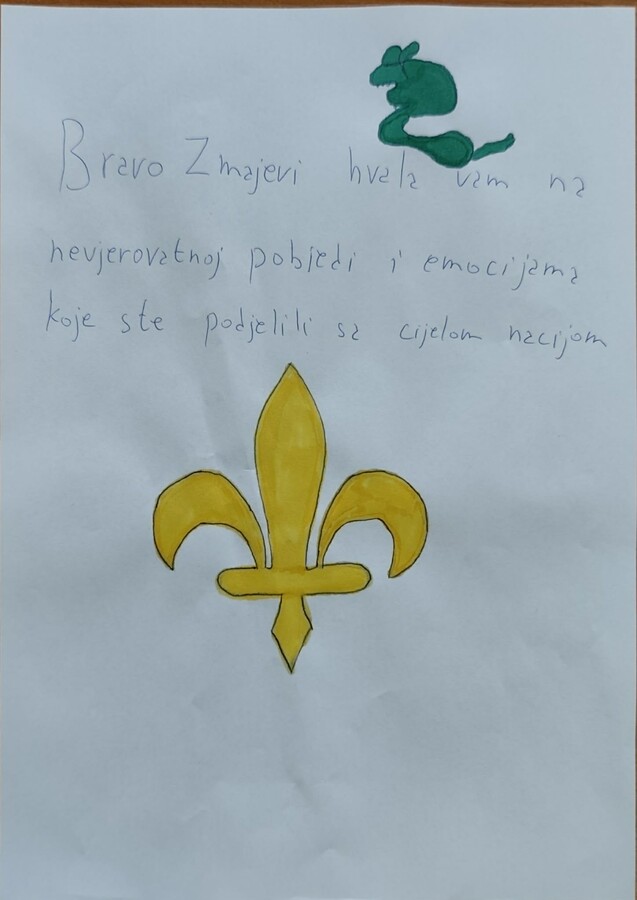 Bravo Zmajevi hvala vam na
nevjerovatnoj pobjedi i emocijama
koje ste podjelili sa cijelom nacijom